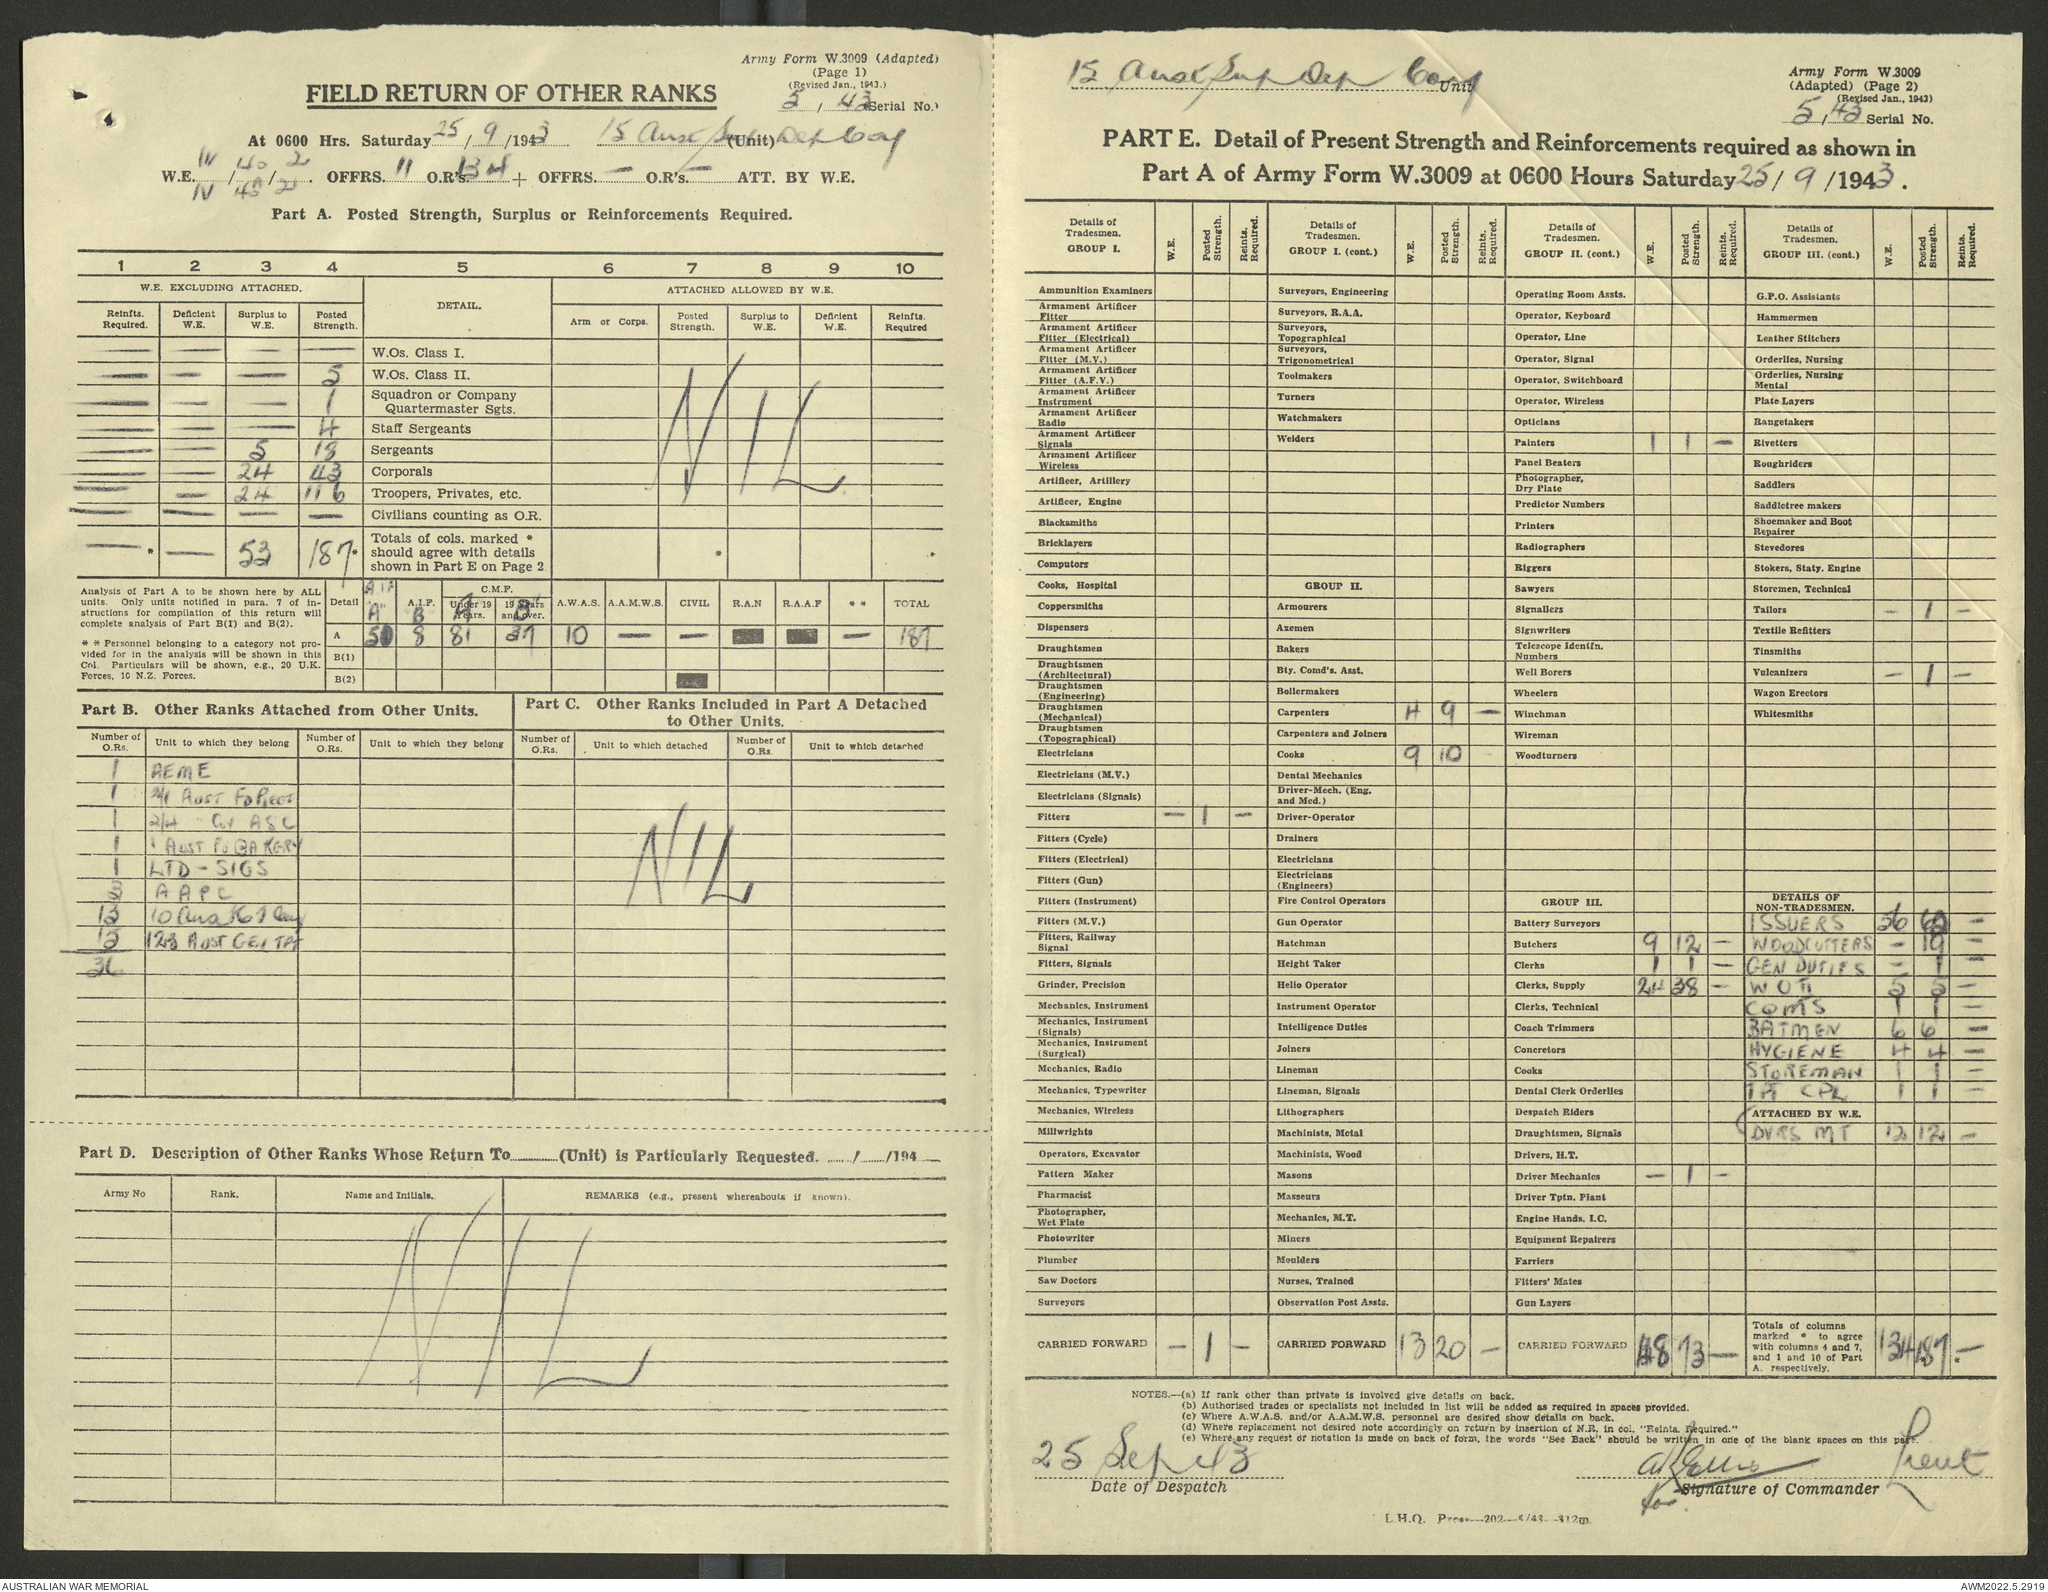 Army Form W.3009 (Adapted)
(Page 1)
(Revised Jan., 1943.)
5 / 43 (Serial No.)
FIELD RETURN OF OTHER RANKS
At 0600 Hrs. Saturday 25 / 9 / 1943 15 Aust Sup Dep Coy (Unit)
W.E. IV / 40 / 2 . OFFRS. 11 O.R's. 134 + OFFRS. — O.R's. — ATT. BY W.E.
IV 45A 2
Part A. Posted Strength, Surplus or Reinforcements Required.
1 2 3 4 5 6 7 8 9 10
W.E. EXCLUDING ATTACHED. DETAIL. ATTACHED ALLOWED BY W.E.
Reinfts. Required. Deficient W.E. Surplus to W.E. Posted Strength. Arm or Corps. Posted Strength. Surplus to W.E. Deficient W.E. Reinfts. Required
— — — — W.Os. Class I.
— — — 5 W.Os. Class II.
— — — 1 Squadron or Company Quartermaster Sgts.
— — — 4 Staff Sergeants
— — 5 18 Sergeants
— — 24 43 Corporals
— — 24 116 Troopers, Privates, etc.
— — — — Civilians counting as O.R.
— * — 53 187 * Totals of cols. marked * should agree with details shown in Part E on Page 2. * *
NIL
Analysis of Part A to be shown here by ALL units. Only units notified in para. 7 of instructions for compilation of this return will complete analysis of Part B(1) and B(2).
* * Personnel belonging to a category not provided for in the analysis will be shown in this Col. Particulars will be shown, e.g., 20 U.K. Forces, 10 N.Z. Forces.
Detail AIF "A" A.I.F. "B" C.M.F. Under 19 Years. A 19 Years and over. B A.W.A.S. A.A.M.W.S. CIVIL R.A.N R.A.A.F * * TOTAL
A 50 8 81 37 10 — — — 187
B(1)
B(2)
Part B. Other Ranks Attached from Other Units.
Part C. Other Ranks Included in Part A Detached to Other Units.
Number of O.Rs. Unit to which they belong Number of O.Rs. Unit to which they belong Number of O.Rs. Unit to which detached Number of O.Rs. Unit to which detached
1 AEME
1 2/1 AUST FD
1 2/4 ASC
1 1 AUST FD BAKERY
1 LTD - SIGS
3 AAPC
13 10 Aust
15 123 AUST GEN TPT
36
NIL
Part D. Description of Other Ranks Whose Return To (Unit) is Particularly Requested. / /194
Army No Rank. Name and Initials. REMARKS (e.g., present whereabouts if known).
NIL
15 Aust Sup Dep Coy Unit
Army Form W.3009
(Adapted) (Page 2)
(Revised Jan., 1943)
5/43 Serial No.
PART E. Detail of Present Strength and Reinforcements required as shown in
Part A of Army Form W.3009 at 0600 Hours Saturday 25 / 9 / 1943 .
Details of Tradesmen. GROUP I. W.E. Posted Strength. Reints. Required.
Ammunition Examiners
Armament Artificer Fitter
Armament Artificer Fitter (Electrical)
Armament Artificer Fitter (M.V.)
Armament Artificer Fitter (A.F.V.)
Armament Artificer Instrument
Armament Artificer Radio
Armament Artificer Signals
Armament Artificer Wireless
Artificer, Artillery
Artificer, Engine
Blacksmiths
Bricklayers
Computors
Cooks, Hospital
Coppersmiths
Dispensers
Draughtsmen
Draughtsmen (Architectural)
Draughtsmen (Engineering)
Draughtsmen (Mechanical)
Draughtsmen (Topographical)
Electricians
Electricians (M.V.)
Electricians (Signals)
Fitters — 1 —
Fitters (Cycle)
Fitters (Electrical)
Fitters (Gun)
Fitters (Instrument)
Fitters (M.V.)
Fitters, Railway Signal
Fitters, Signals
Grinder, Precision
Mechanics, Instrument
Mechanics, Instrument (Signals)
Mechanics, Instrument (Surgical)
Mechanics, Radio
Mechanics, Typewriter
Mechanics, Wireless
Millwrights
Operators, Excavator
Pattern Maker
Pharmacist
Photographer, Wet Plate
Photowriter
Plumber
Saw Doctors
Surveyors
CARRIED FORWARD — 1 —
Details of Tradesmen. GROUP I. (cont.) W.E. Posted Strength. Reints. Required.
Surveyors, Engineering
Surveyors, R.A.A.
Surveyors, Topographical
Surveyors, Trigonometrical
Toolmakers
Turners
Watchmakers
Welders
GROUP II.
Armourers
Axemen
Bakers
Bty. Comd's. Asst.
Boilermakers
Carpenters 4 9 —
Carpenters and Joiners
Cooks 9 10 -
Dental Mechanics
Driver-Mech. (Eng. and Med.)
Driver-Operator
Drainers
Electricians
Electricians (Engineers)
Fire Control Operators
Gun Operator
Hatchman
Height Taker
Helio Operator
Instrument Operator
Intelligence Duties
Joiners
Lineman
Lineman, Signals
Lithographers
Machinists, Metal
Machinists, Wood
Masons
Masseurs
Mechanics, M.T.
Miners
Moulders
Nurses, Trained
Observation Post Assts.
CARRIED FORWARD 13 20 —
Details of Tradesmen. GROUP II. (cont.) W.E. Posted Strength. Reints. Required.
Operating Room Assts.
Operator, Keyboard
Operator, Line
Operator, Signal
Operator, Switchboard
Operator, Wireless
Opticians
Painters 1 1 —
Panel Beaters
Photographer, Dry Plate
Predictor Numbers
Printers
Radiographers
Riggers
Sawyers
Signallers
Signwriters
Telescope Identfn. Numbers
Well Borers
Wheelers
Winchman
Wireman
Woodturners
GROUP III.
Battery Surveyors
Butchers 9 12 —
Clerks 1 1 —
Clerks, Supply 24 38 —
Clerks, Technical
Coach Trimmers
Concretors
Cooks
Dental Clerk Orderlies
Despatch Riders
Draughtsmen, Signals
Drivers, H.T.
Driver Mechanics — 1 —
Driver Tptn. Plant
Engine Hands, I.C.
Equipment Repairers
Farriers
Fitters' Mates
Gun Layers
CARRIED FORWARD 48 73 —
Details of Tradesmen. GROUP III. (cont.) W.E. Posted Strength. Reints. Required.
G.P.O. Assistants
Hammermen
Leather Stitchers
Orderlies, Nursing
Orderlies, Nursing Mental
Plate Layers
Rangetakers
Rivetters
Roughriders
Saddlers
Saddletree makers
Shoemaker and Boot Repairer
Stevedores
Stokers, Staty. Engine
Storemen, Technical
Tailors — 1 —
Textile Refitters
Tinsmiths
Vulcanizers — 1 —
Wagon Erectors
Whitesmiths
DETAILS OF NON-TRADESMEN.
ISSUERS 56 62 —
WOODCUTTERS — 19 —
GEN DUTIES — 1 —
WO II 5 5 —
CQMS 1 1 —
BATMEN 6 6 —
HYGIENE 4 4 —
STOREMAN 1 1 —
TPT CPL 1 1 —
ATTACHED BY W.E.
DVRS MT 12 12 —
Totals of columns marked * to agree with columns 4 and 7, and 1 and 10 of Part A. respectively. 134 187 * —
NOTES.—(a) If rank other than private is involved give details on back.
(b) Authorised trades or specialists not included in list will be added as required in spaces provided.
(c) Where A.W.A.S. and/or A.A.M.W.S. personnel are desired show details on back.
(d) Where replacement not desired note accordingly on return by insertion of N.R. in col. "Reints. Required."
(e) Where any request or notation is made on back of form, the words "See Back" should be written in one of the blank spaces on this page.
25 Sep 43
Date of Despatch
Lieut
for Signature of Commander
L.H.Q. Press—202—8/43—312m.
AUSTRALIAN WAR MEMORIAL
AWM2022.5.2919